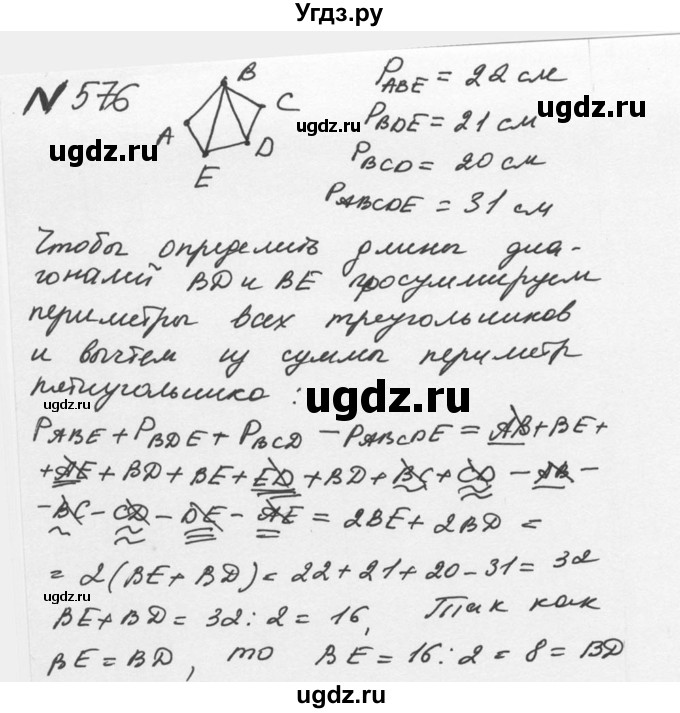 Угдз.ру
№ 576
B
C
A
D
E
P ABE = 22 см
P BDE = 21 см
P BCD = 20 см
P ABCDE = 31 см
ugdz.ru
ugdz.ru
ugdz.ru
ugdz.ru
Чтобы определить длины диа-
гоналей BD и BE просуммируем
периметры всех треугольников
и вычтем из суммы периметр
пятиугольника :
ugdz.ru
ugdz.ru
P ABE + P BDE + P BCD − P ABCDE = AB + BE +
+ AE + BD + BE + ED + BD + BC + CD − AB −
− BC − CD − DE − AE = 2BE + 2BD =
= 2(BE + BD) = 22 + 21 + 20 − 31 = 32
ugdz.ru
BE + BD = 32 : 2 = 16, Так как
BE = BD, то BE = 16 : 2 = 8 = BD
ugdz.ru
ugdz.ru